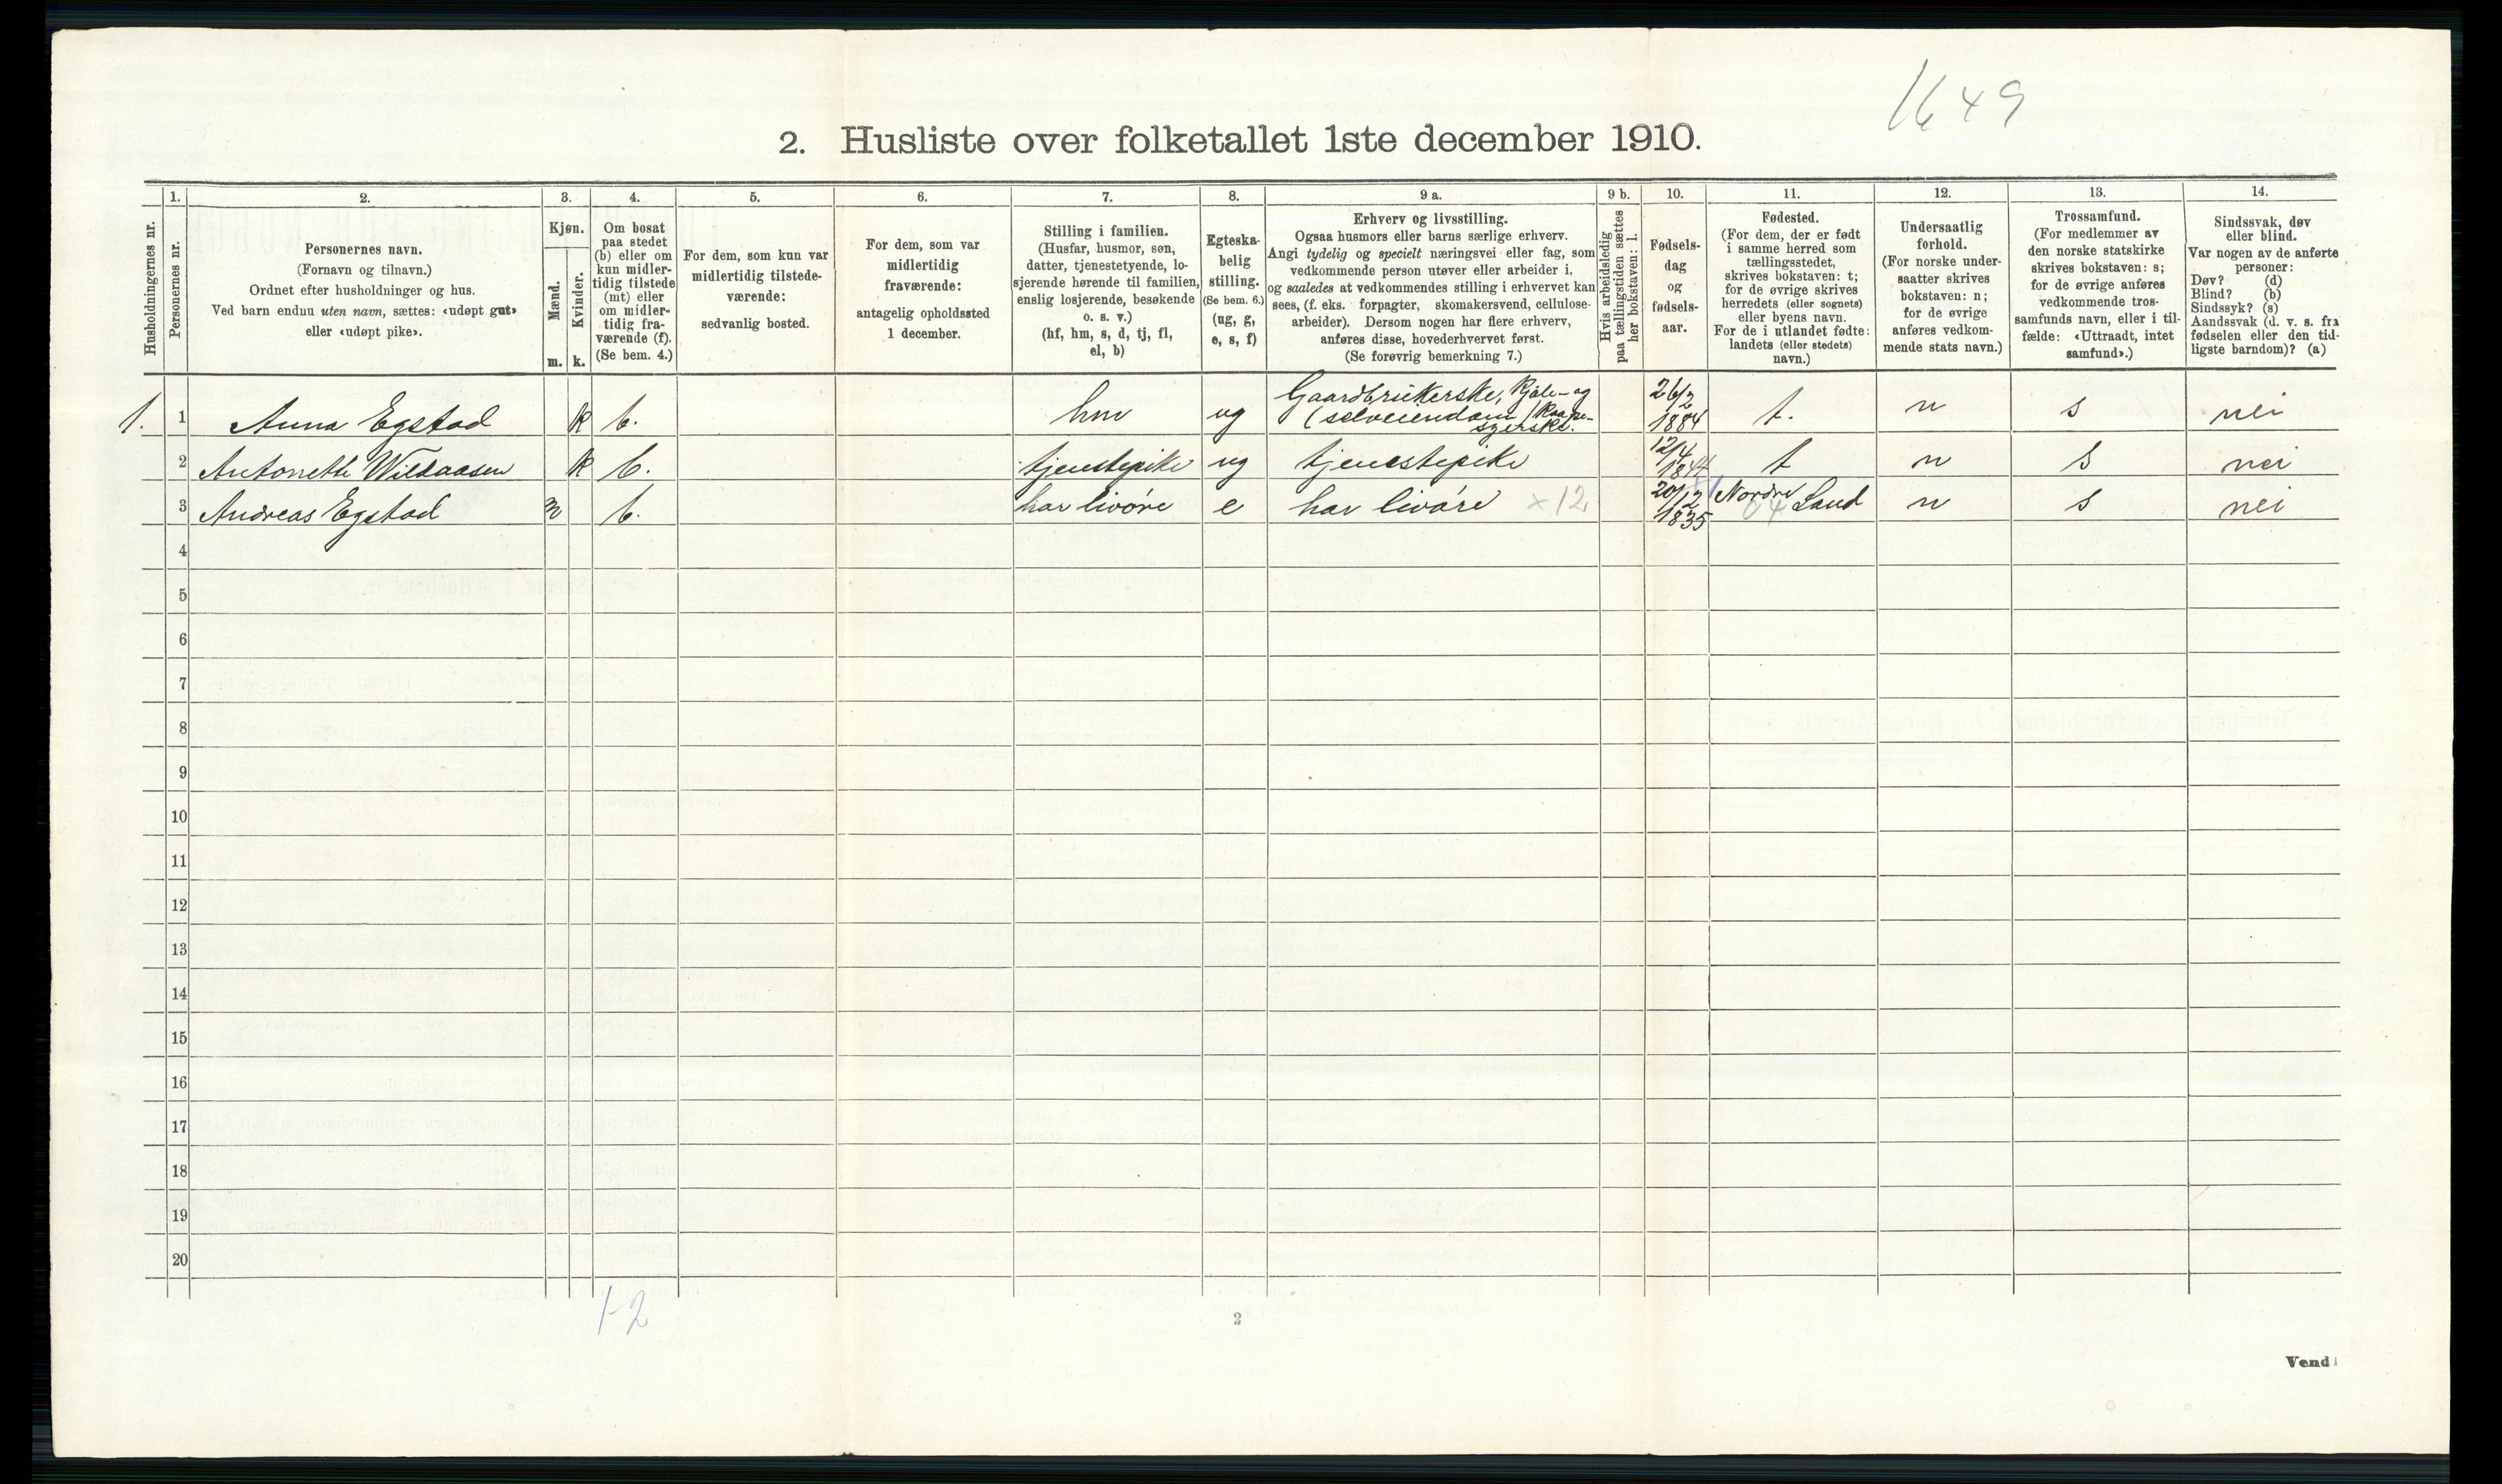 1649
2. Husliste over folketallet 1ste december 1910.
Husholdningernes nr.
1.
Personernes nr.
2.
Personernes navn.
(Fornavn og tilnavn.)
Ordnet efter husholdninger og hus.
Ved barn endnu uten navn, sættes: «udøpt gut»
eller «udøpt pike».
3.
Kjøn.
Mænd.
Kvinder.
m. k.
4.
Om bosat
paa stedet
(b) eller om
kun midler-
tidig tilstede
(mt) eller
om midler-
tidig fra-
værende (f).
(Se bem. 4.)
5.
For dem, som kun var
midlertidig tilstede-
værende:
sedvanlig bosted.
6.
For dem, som var
midlertidig
fraværende:
antagelig opholdssted
1 december.
7.
Stilling i familien.
(Husfar, husmor, søn,
datter, tjenestetyende, lo-
sjerende hørende til familien,
enslig losjerende, besøkende
o. s. v.)
(hf, hm, s, d, tj, fl,
el, b)
8.
Egteska-
belig
stilling.
(Se bem. 6.)
(ug, g,
e, s, f)
9 a.
Erhverv og livsstilling.
Ogsaa husmors eller barns særlige erhverv.
Angi tydelig og specielt næringsvei eller fag, som
vedkommende person utøver eller arbeider i,
og saaledes at vedkommendes stilling i erhvervet kan
sees, (f. eks. forpagter, skomakersvend, cellulose-
arbeider). Dersom nogen har flere erhverv,
anføres disse, hovederhvervet først.
(Se forøvrig bemerkning 7.)
9 b.
Hvis arbeidsledig
paa tællingstiden sættes
her bokstaven: l.
10.
Fødsels-
dag
og
fødsels-
aar.
11.
Fødested.
(For dem, der er født
i samme herred som
tællingsstedet,
skrives bokstaven: t;
for de øvrige skrives
herredets (eller sognets)
eller byens navn.
For de i utlandet fødte:
landets (eller stedets)
navn.)
12.
Undersaatlig
forhold.
(For norske under-
saatter skrives
bokstaven: n;
for de øvrige
anføres vedkom-
mende stats navn.)
13.
Trossamfund.
(For medlemmer av
den norske statskirke
skrives bokstaven: s;
for de øvrige anføres
vedkommende tros-
samfunds navn, eller i til-
fælde: «Uttraadt, intet
samfund».)
14.
Sindssvak, døv
eller blind.
Var nogen av de anførte
personer:
Døv? (d)
Blind? (b)
Sindssyk? (s)
Aandssvak (d. v. s. fra
fødselen eller den tid-
ligste barndom)? (a)
1. 1 Anna Egstad k b. hm ug Gaardbrukerske, Kjole- og (selveiendom) 26/2 1884 t. n s nei
2 Antonette k b. tjenestepike ug tjenestepike 12/4 t n s nei
3 Andreas Egstad m b. har livøre e har livøre x 12 20/12 1835 Nordre Land 04 n s nei
4
5
6
7
8
9
10
11
12
13
14
15
16
17
18
19
20
1-2
2
Vend!